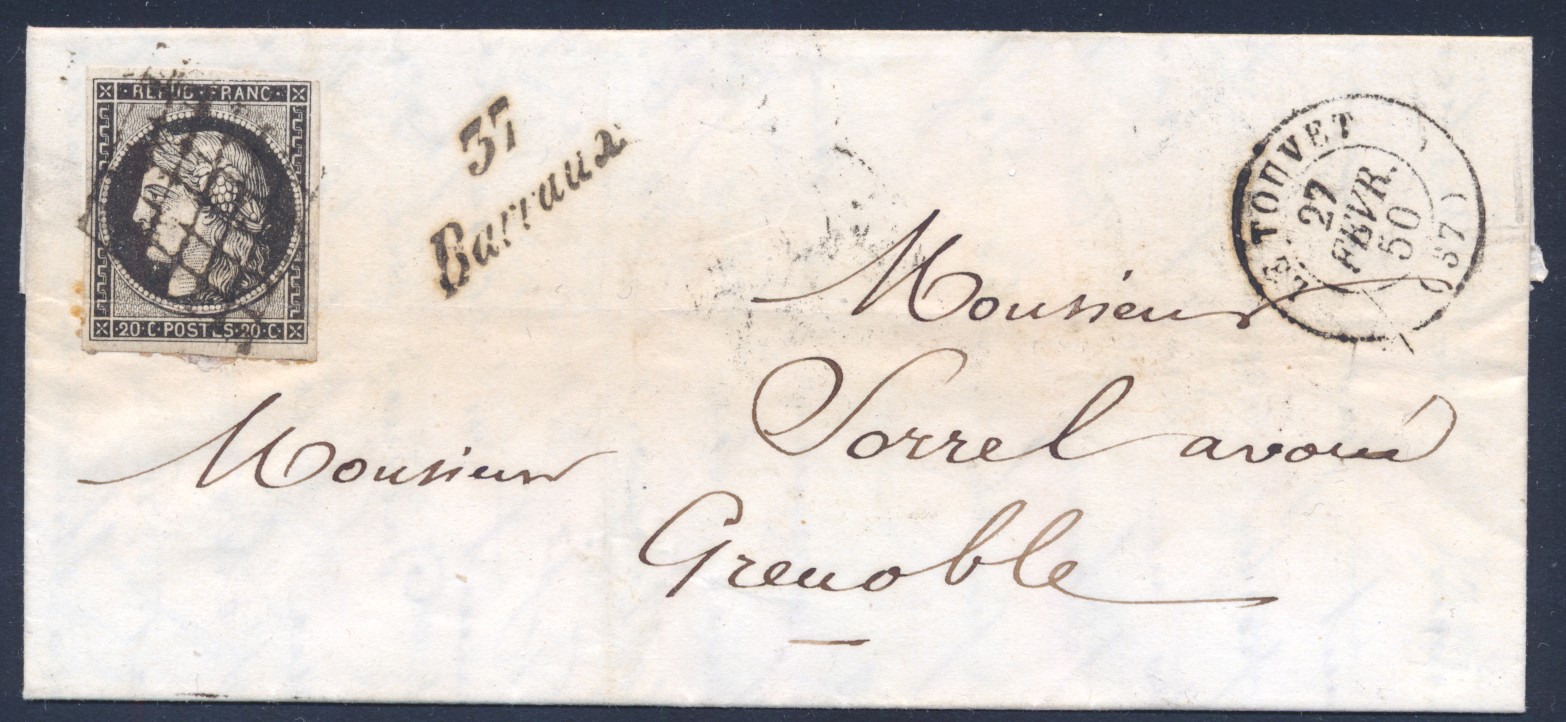 REPUB·FRANC
20·C·POSTES·20·C
37
Barraux
LE TOUVET
27
FEVR.
50
(37)
Monsieur
Sorrel avoué
Monsieur
Grenoble